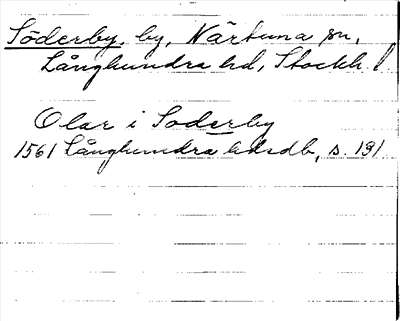 Söderby, by, Närtuna sn,
Långhundra hd, Stockh. l
Olar i Soderby
1561 Långhundra hdsdb, s. 191